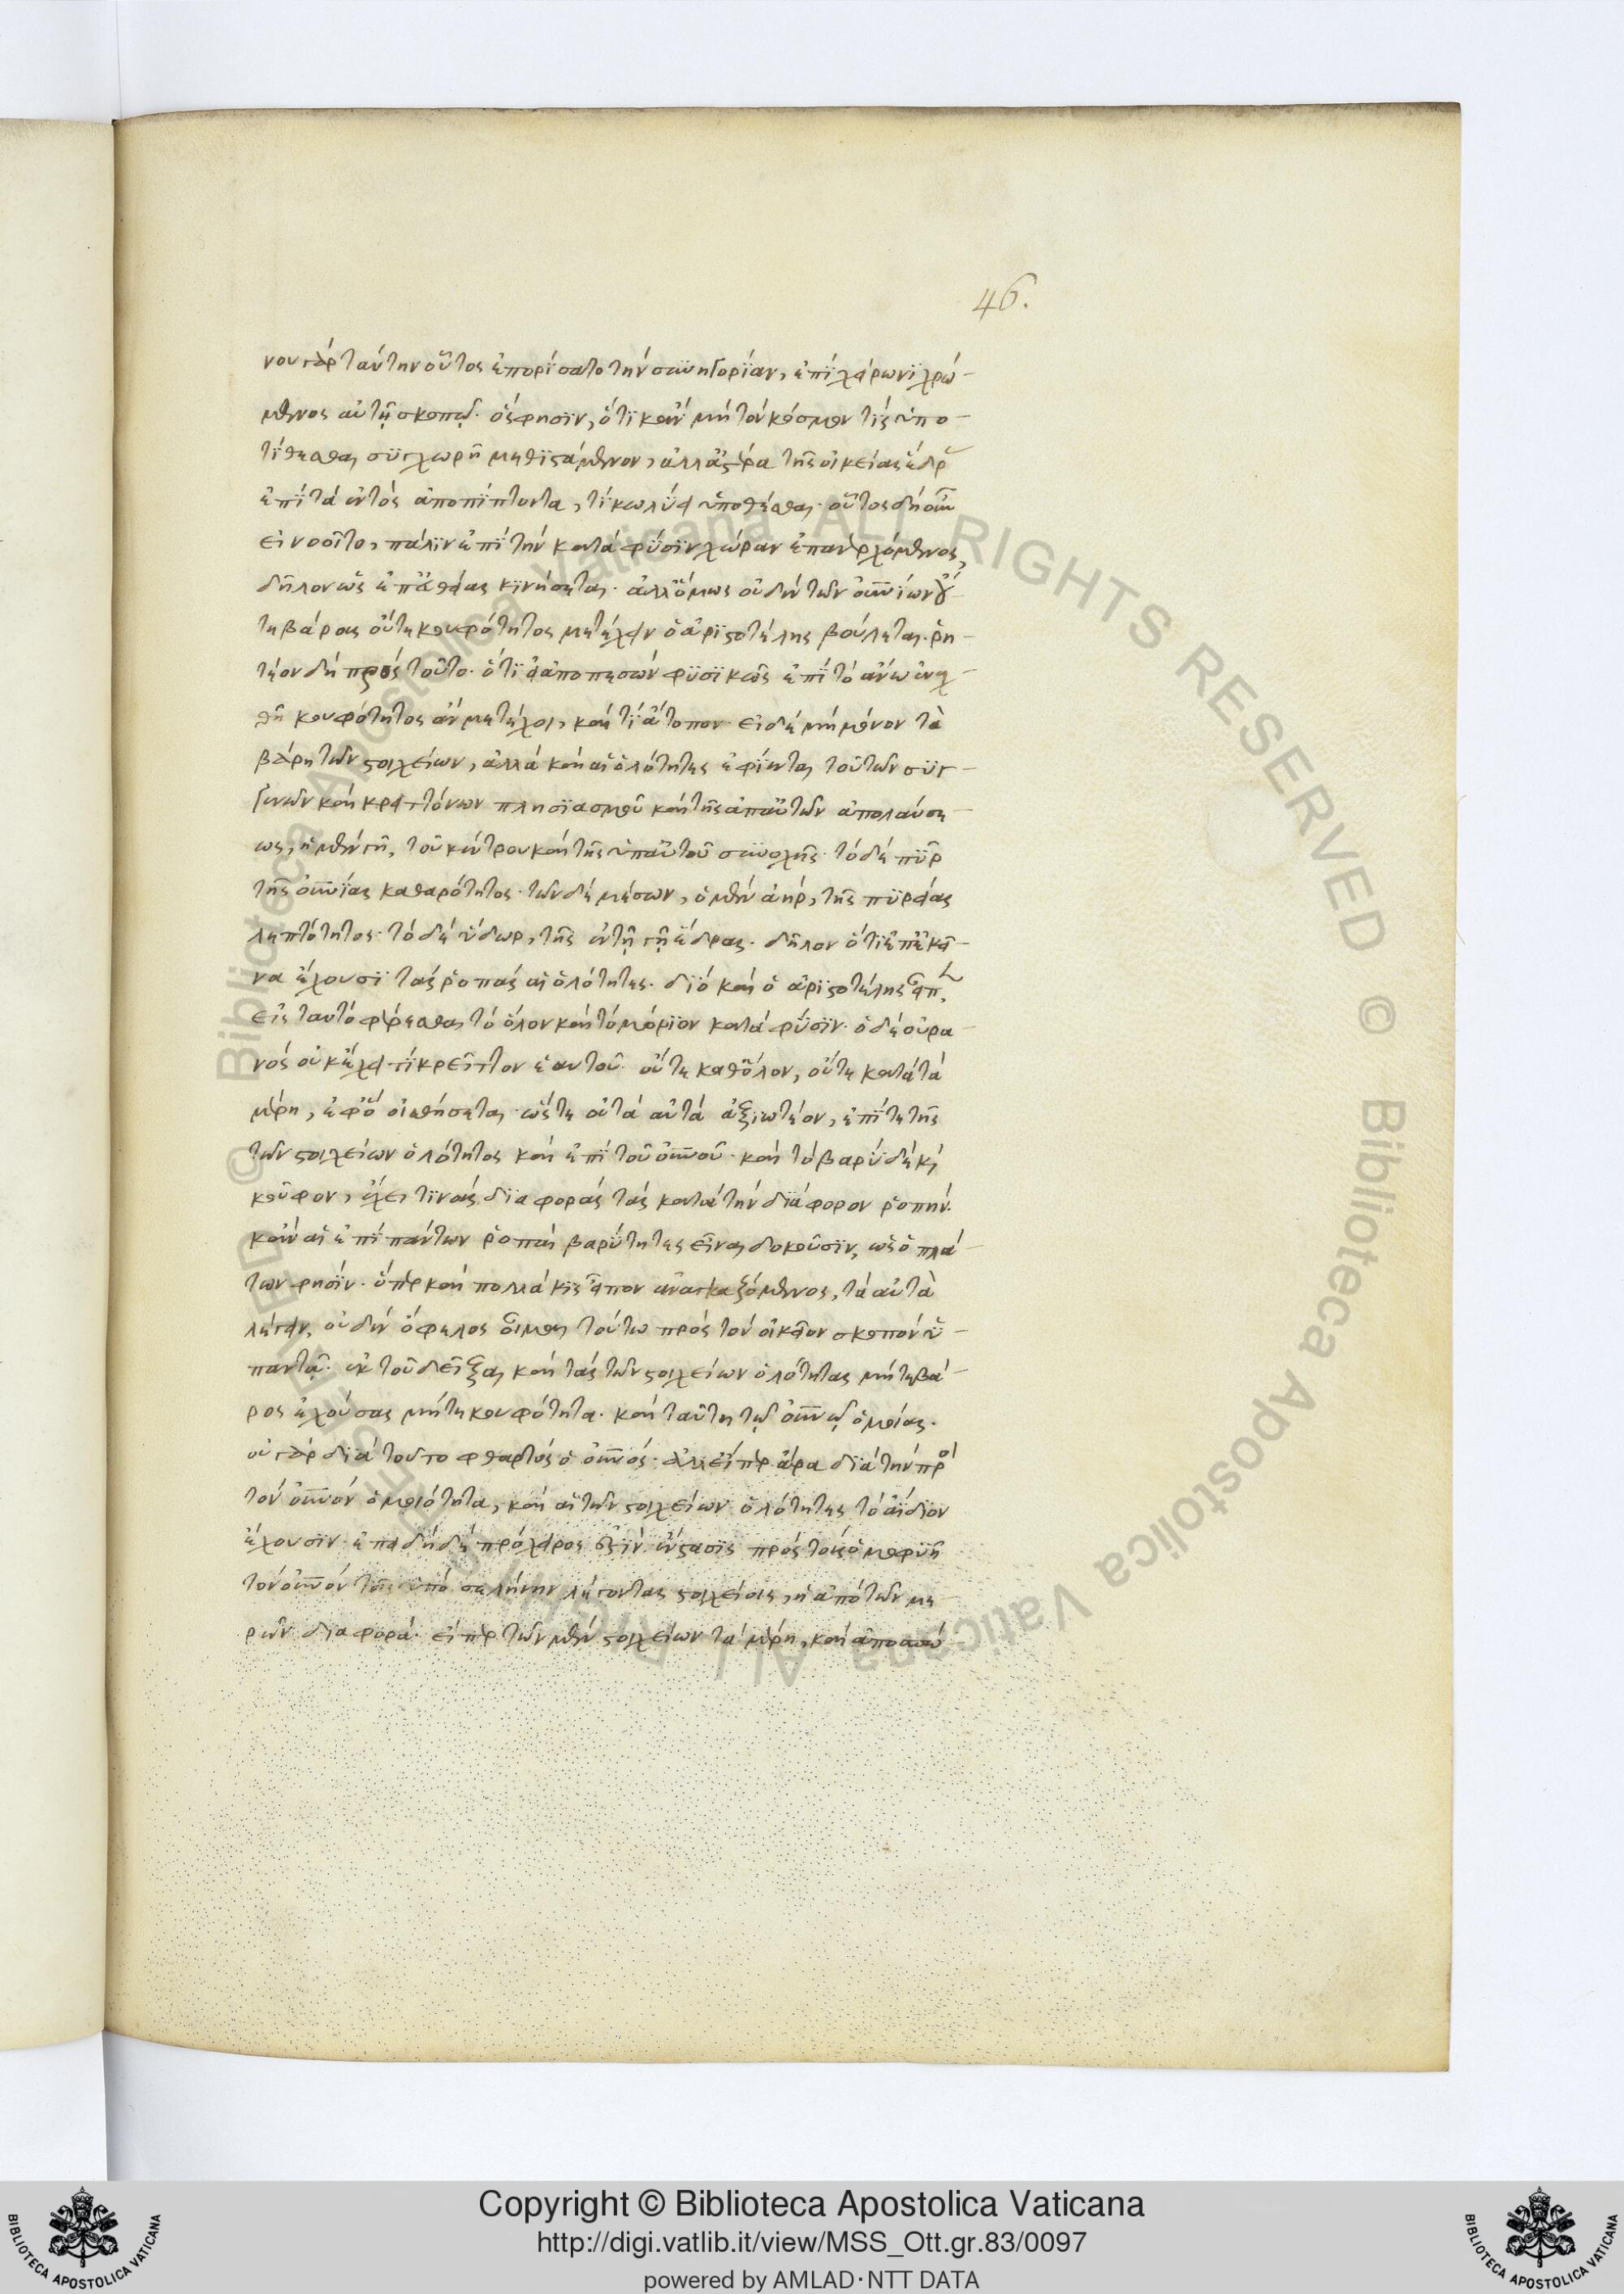 46.
νου γὰρ ταύτην οὗτος ἐπορίσατο τὴν συνηγορίαν, ἐπὶ χείρωνι χρώ-
μενος αὐτῇ σκοπῷ. ὅς φησιν, ὅτι κἂν μὴ τὸν κόσμον τὶς ὑπο-
τίθεσθαι συγχωρῇ μεθιστάμενον, ἀλλ' ἄστρα τῆς οἰκείας ἕδρ
ἐπὶ τὰ ἐντὸς ἀποπίπτοντα, τί κωλύει ὑποθέσθαι. οὗτος δὴ οὖν
εἰ νοοῖτο, πάλιν ἐπὶ τὴν κατὰ φύσιν χώραν ἐπανερχόμενος,
δῆλον ὡς ἐπ' εὐθείας κινήσεται. ἀλλ' ὅμως οὐδὲν τῶν οὐνίων οὔ
τε βάρους οὔτε κουφότητος μετέχειν ὁ ἀριστοτέλης βούλεται. ῥη-
τέον δὴ πρὸς τοῦτο. ὅτι εἰ ἀποπεσὼν φυσικῶς ἐπὶ τὸ ἄνω ἐνεχ-
θῆ κουφότητος ἂν μετέχοι, καὶ τί ἄτοπον. εἰ δὲ μὴ μόνον τὰ
βάρη τῶν στοιχείων, ἀλλὰ καὶ αἱ ὁλότητες ἐφίενται τούτων συγ-
γενῶν καὶ κρειττόνων πλησιασμοῦ καὶ τῆς ἀπ' αὐτῶν ἀπολαύσε-
ως, ἡ μὲν γῆ, τοῦ κέντρου καὶ τῆς ὑπ' αὐτοῦ συνοχῆς. τὸ δὲ πῦρ
τῆς οὐνίας καθαρότητος. τῶν δὲ μέσων, ὁ μὲν ἀὴρ, τῆς πυρείας
λεπτότητος. τὸ δὲ ὕδωρ, τῆς ἐν τῇ γῇ ἕδρας. δῆλον ὅτι ἐπέκει-
να ἔχουσι τὰς ῥοπὰς αἱ ὁλότητες. διὸ καὶ ὁ ἀριστοτέλης εἶπ,
εἰς ταυτὸ φέρεσθαι τὸ ὅλον καὶ τὸ μόριον κατὰ φύσιν. ὁ δὲ οὐρα-
νὸς οὐκ ἔχει τι κρεῖττον ἑαυτοῦ. οὔτε καθ' ὅλον, οὔτε κατὰ τὰ
μέρη, ἐφ' ὃ οἰσθήσεται. ὥστε οὐ τὰ αὐτὰ ἀξιωτέον, ἐπί τε τῆς
τῶν στοιχείων ὁλότητος καὶ ἐπὶ τοῦ οὐνοῦ. καὶ τὸ βαρὺ δὲ κὶ
κοῦφον, ἔχει τινὰς διαφορὰς τὰς κατὰ τὴν διάφορον ῥοπήν.
κἂν αἱ ἐπὶ πάντων ῥοπαὶ βαρύτητες εἶναι δοκοῦσιν, ὡς ὁ πλά-
των φησίν. ὅπερ καὶ πολλάκις εἶπον ἀναγκαζόμενος, τὰ αὐτὰ
λέγειν, οὐδὲν ὄφελος οἶμαι τούτω πρὸς τὸν οἰκεῖον σκοπὸν ὑ-
παντᾷ. ἐκ τοῦ δεῖξαι καὶ τὰς τῶν στοιχείων ὁλότητας μήτε βά-
ρος ἐχούσας μήτε κουφότητα. καὶ ταύτῃ τῷ οὐνῷ ὁμοίας.
οὐ γὰρ διὰ τοῦτο φθαρτὸς ὁ οὐνός. ἀλλ' εἴπερ ἄρα διὰ τὴν πρὸ
τὸν οὐνὸν ὁμοιότητα, καὶ αἱ τῶν στοιχείων ὁλότητες τὸ ἀΐδιον
ἔχουσιν. ἐπειδὴ δὲ πρόχειρος ἐστὶν ἔνστασις πρὸς τοὺς ὁμοφυῆ
τὸν οὐνὸν τοῖς ὑπὸ σελήνην λέγοντας στοιχείοις, ἡ ἀπὸ τῶν με-
ρῶν διαφορά. εἴπερ τῶν μὲν στοιχείων τὰ μέρη, καὶ
Copyright © Biblioteca Apostolica Vaticana
http://digi.vatlib.it/view/MSS_Ott.gr.83/0097
powered by AMLAD·NTT DATA
BIBLIOTECA APOSTOLICA VATICANA
BIBLIOTECA APOSTOLICA VATICANA